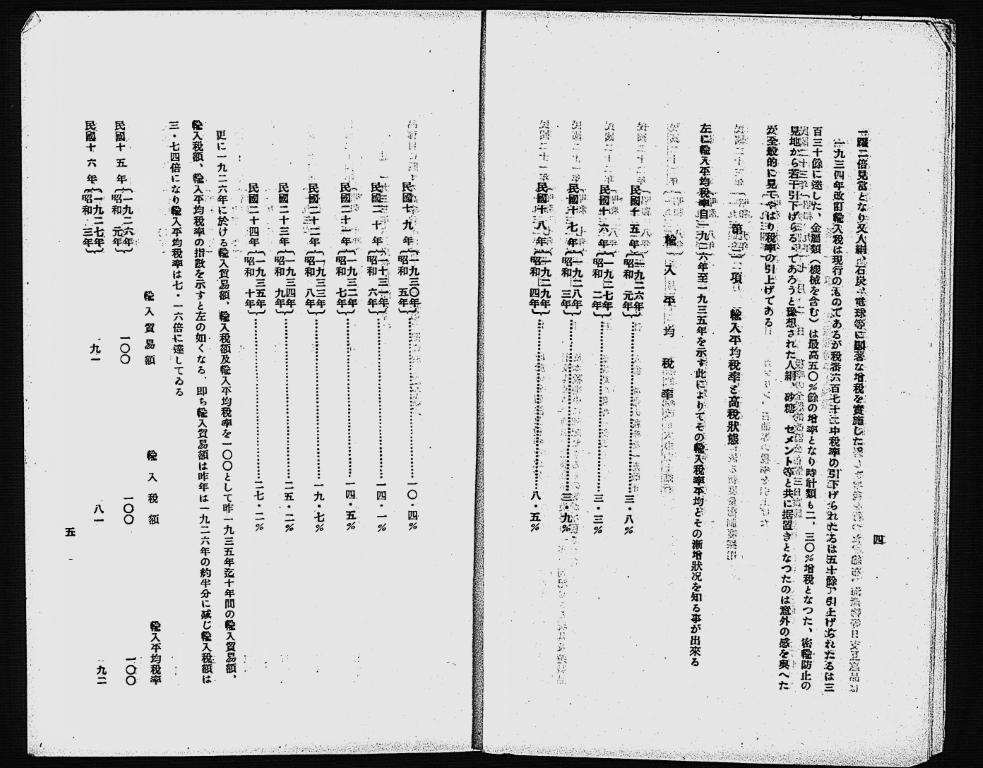 四
一躍二倍見當となり又人絹、石炭、電球等に顯著な增税を實施した
一九三四年改訂輸入税は現行のものであるが税番六百七十二中税率の引下げられたるは五十餘、引上げられたるは三
百三十餘に達した、金屬類(機械を含む)は最高五〇%餘の增率となり時計類も二、三〇%增税となつた、密輸防止の
見地から若干引下げらるゝであらうと豫想された人絹、砂糖、セメント等と共に据置きとなつたのは意外の感を與へた
が全般的に見てやはり税率の引上げである
第二項 輸入平均税率と高税狀態
左に輸入平均税率自一九二六年至一九三五年を示す此によりてその輸入税率平均とその漸增狀況を知る事が出來る
輸入平均税率
民國十五年(一九二六年 昭和元年)……三・八%
民國十六年(一九二七年 昭和二年)……三・三%
民國十七年(一九二八年 昭和三年)……三・九%
民國十八年(一九二九年 昭和四年)……八・五%
民國十九年(一九三〇年 昭和五年)……一〇・四%
民國二十年(一九三一年 昭和六年)……一四・一%
民國二十一年(一九三二年 昭和七年)……一四・五%
民國二十二年(一九三三年 昭和八年)……一九・七%
民國二十三年(一九三四年 昭和九年)……二五・二%
民國二十四年(一九三五年 昭和十年)……二七・二%
更に一九二六年に於ける輸入貿易額、輸入税額及輸入平均税率を一〇〇として昨一九三五年迄十年間の輸入貿易額、
輸入税額、輸入平均税率の指數を示すと左の如くなる、即ち輸入貿易額は昨年は一九二六年の約半分に減じ輸入税額は
三・七四倍になり輸入平均税率は七・一六倍に達してゐる
輸入貿易額 輸入税額 輸入平均税率
民國十五年(一九二六年 昭和元年) 一〇〇 一〇〇 一〇〇
民國十六年(一九二七年 昭和三年) 九一 八一 九二
五